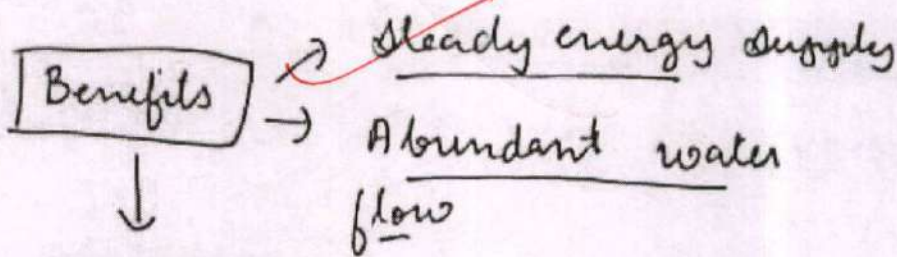 Benefits
Steady energy supply
Abundant water
flow